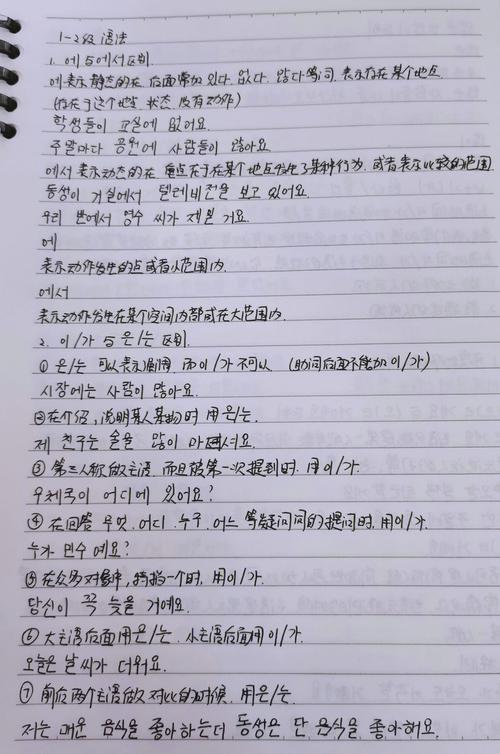 1-2级语法
1. 에与에서区别
에表示静态的在 后面常加 있다. 없다. 많다等词. 表示存在某个地点
(存在于这个地点 状态 没有动作)
학생들이 교실에 없어요.
주말마다 공원에 사람들이 많아요.
에서 表示动态的在 重点在于在某个地点发生了某种行为. 或者表示比较的范围
동생이 거실에서 텔레비전을 보고 있어요.
우리 반에서 영수 씨가 제일 커요.
에
表示动作发生的点或者小范围内.
에서
表示动作发生在某个空间内部或在大范围内.
2. 이/가 与 은/는 区别.
① 은/는 可以表示强调 而이/가 不可以 (助词后面不能加이/가)
시장에는 사람이 많아요.
②在介绍,说明某人某物时 用은/는.
제 친구는 술을 많이 마셔요.
③ 第三人称做主语. 而且被第一次提到时. 用이/가.
우체국이 어디에 있어요?
④ 在回答 무엇. 어디. 누구. 어느 等疑问词的提问时. 用이/가.
누가 민수예요?
⑤在众多对象中, 特指一个时. 用이/가.
당신이 꼭 늦을 거예요.
⑥ 大主语后面用은/는. 小主语后面用이/가.
오늘은 날씨가 더워요.
⑦ 前后两个主语做对比的时候. 用은/는.
저는 매운 음식을 좋아하는데 동생은 단 음식을 좋아해요.